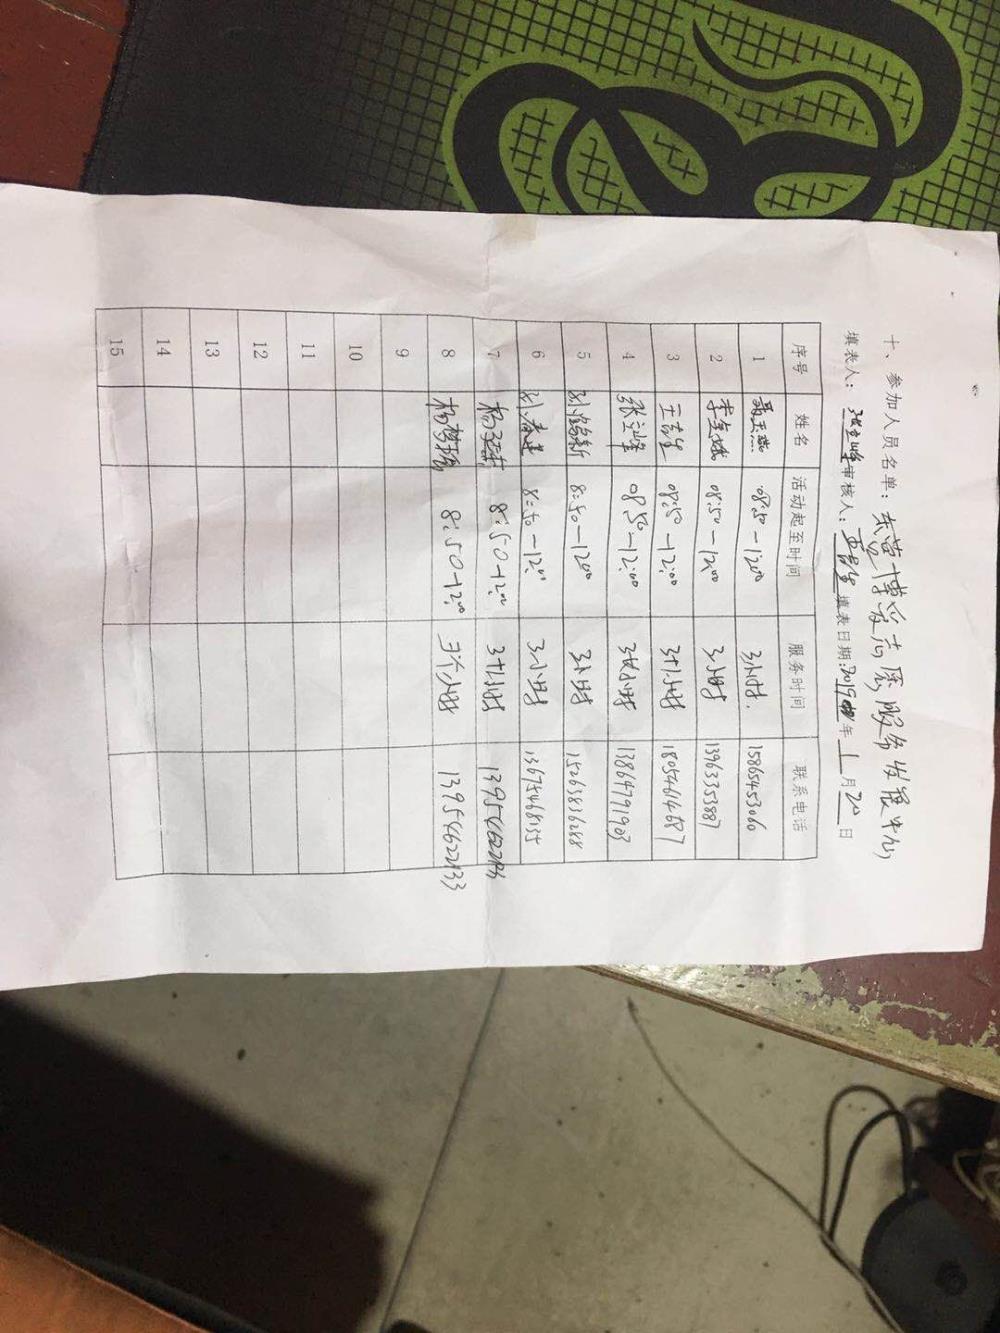 十、参加人员名单：东营博爱志愿服务发展中心
填表人：张立峰 审核人：王吉生 填表日期：2019年1月20日
序号 姓名 活动起至时间 服务时间 联系电话
1 聂玉燕 08:50-12:00 3小时. 15865453060
2 08:50-12:00 3小时 13963353887
3 王吉生 08:50-12:00 3个小时 18054614687
4 张立峰 08:50-12:00 3个小时 13864791903
5 8:50-12:00 3小时 15263836288
6 刘春 8:50-12:00 3小时 13675468135
7 杨 8:50-12:00 3个小时
8 杨梦 8:50-12:00 3个小时 13954622133
9
10
11
12
13
14
15